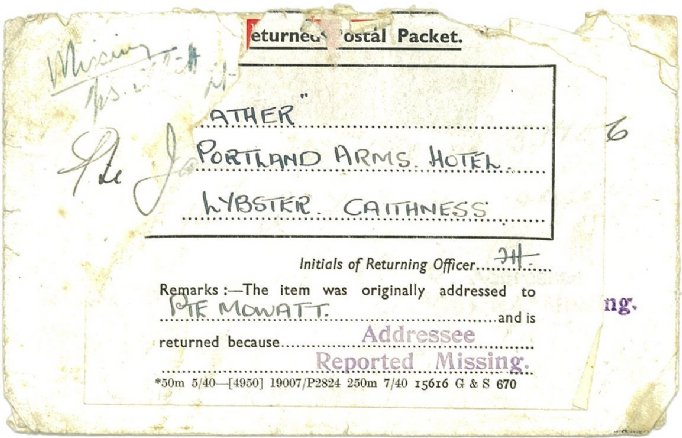 Missing
eturned Postal Packet.
ATHER"
Pte Ja
PORTLAND ARMS. HOTEL.
6
LYBSTER. CAITHNESS
Initials of Returning Officer
Remarks :—The item was originally addressed to
PTE MOWATT. and is
ng.
returned because Addressee
Reported Missing.
*50m 5/40—[4950] 19007/P2824 250m 7/40 15616 G & S 670